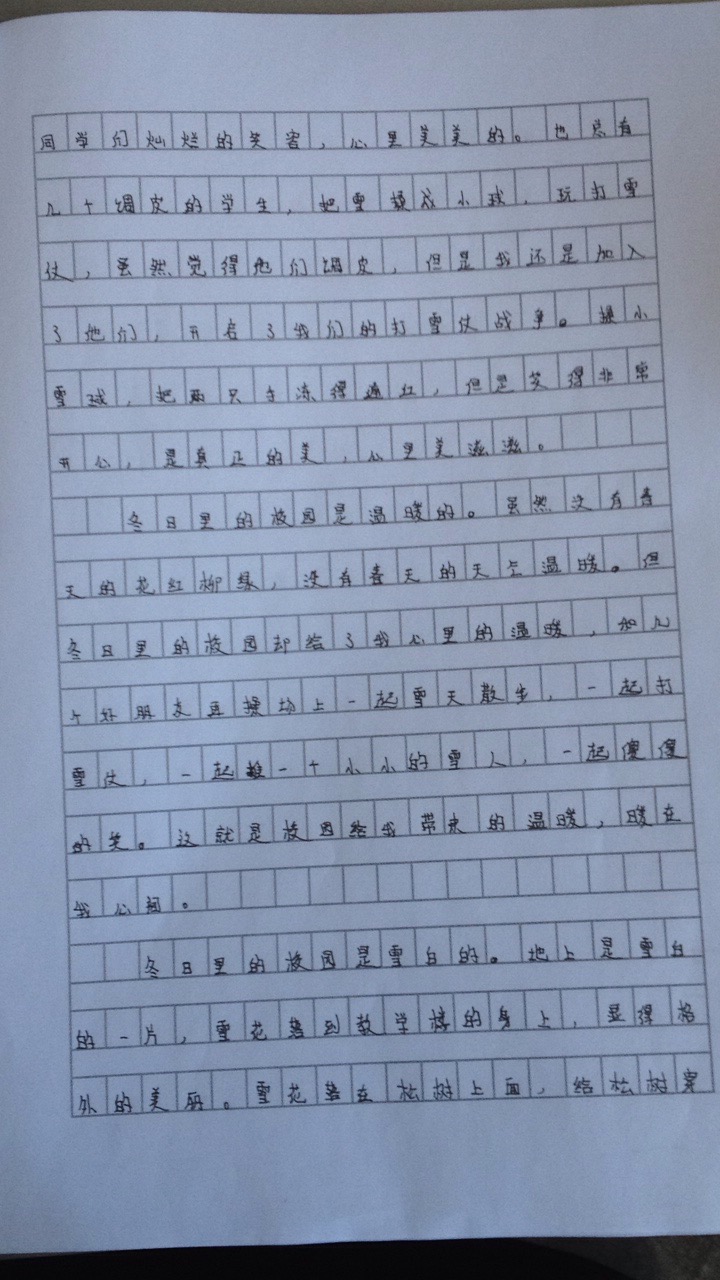 同学们灿烂的笑容，心里美美的。也总有
几个调皮的学生，把雪揉成小球，玩打雪
仗，虽然觉得他们调皮，但是我还是加入
了他们，开启了我们的打雪仗战争。揉小
雪球，把两只手冻得通红，但是笑得非常
开心，是真正的美，心里美滋滋。
冬日里的校园是温暖的。虽然没有春
天的花红柳绿，没有春天的天空温暖。但
冬日里的校园却给了我心里的温暖，和几
个好朋友在操场上一起雪天散步，一起打
雪仗，一起堆一个小小的雪人，一起傻傻
的笑。这就是校园给我带来的温暖，暖在
我心间。
冬日里的校园是雪白的。地上是雪白
的一片，雪花落到教学楼的身上，显得格
外的美丽。雪花落在松树上面，给松树穿